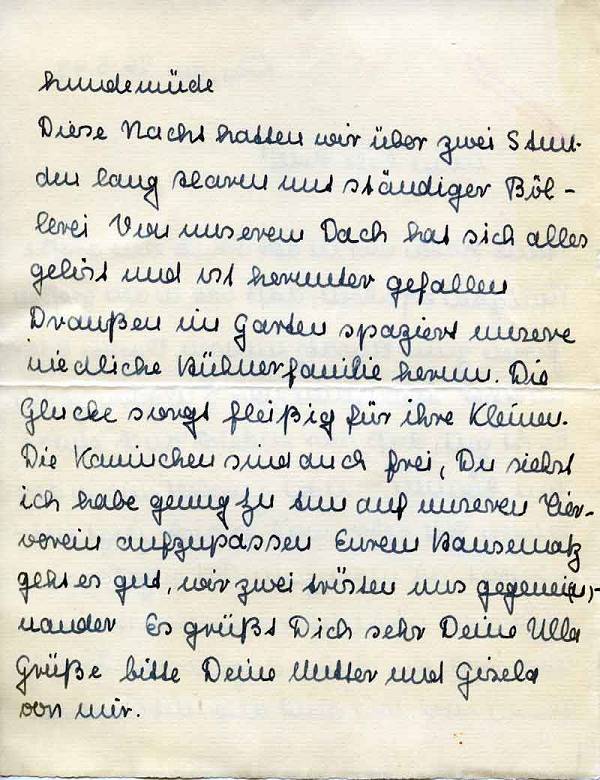 hundemüde
Diese Nacht hatten wir über zwei Stun-
den lang Alarm mit ständiger Böl-
lerei Von unserem Dach hat sich alles
gelöst und ist herunter gefallen
Draußen im Garten spaziert unsere
niedliche Hühnerfamilie herum. Die
Glucke sorgt fleißig für ihre Kleinen.
Die Kaninchen sind auch frei, Du siehst
ich habe genug zu tun auf unseren Tier-
verein aufzupassen Eurem Hansematz
geht es gut, wir zwei trösten uns gegenei(n)-
nander Es grüßt Dich sehr Deine Ulla
Grüße bitte Deine Mutter und Gisela
von mir.